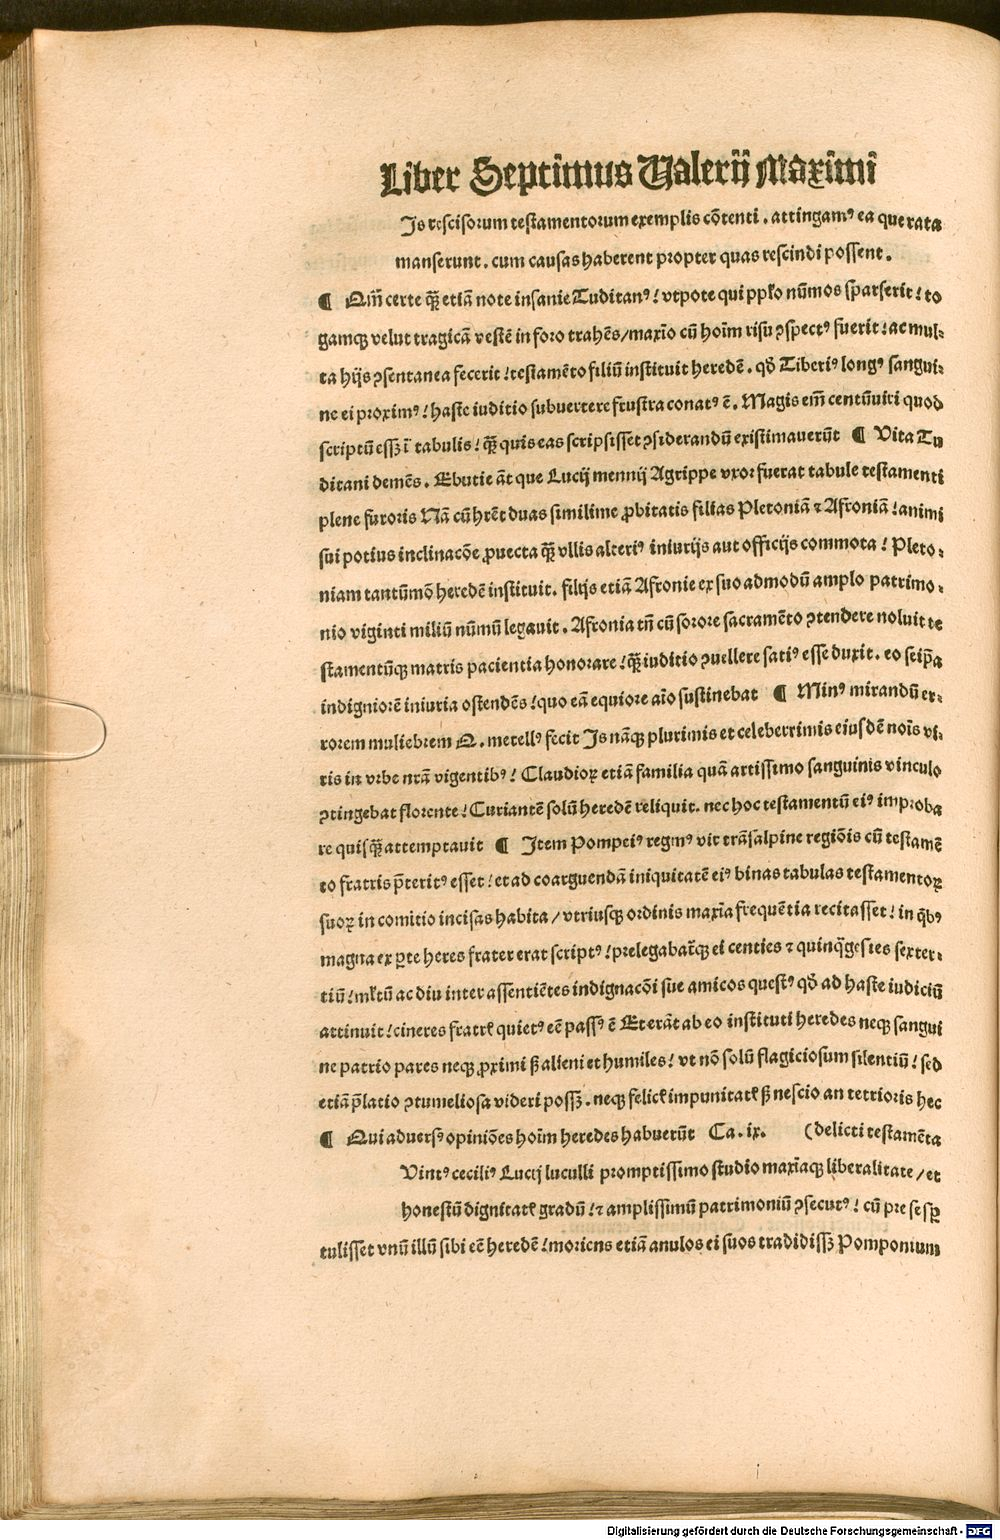 Liber Septimus Valerij Maximi
Is rescisorum testamentorum exemplis cõtenti. attingamꝰ ea que rata
manserunt. cum causas haberent propter quas rescindi possent.
¶ Qm̃ certe q̃ꝫ etiã note insanie Tuditanꝰ! vtpote qui pplo nũmos sparserit! to
gamqꝫ velut tragicã vestẽ in foro trahẽs/maxĩo cũ hoĩm risu ꝯspectꝰ fuerit! ac mul⸗
ta hijs ꝯsentanea fecerit! testamẽto filiũ instituit heredẽ. qđ Tiberiꝰ longꝰ sangui⸗
ne ei proximꝰ! haste iuditio subuertere frustra conatꝰ ẽ. Magis em̃ centũuiri quod
scriptũ essꝫ ĩ tabulis! q̃ꝫ quis eas scripsisset ꝯsiderandũ existimauerũt ¶ Vita Tu
ditani demẽs. Ebutie ãt que Lucij mennij Agrippe vxor fuerat tabule testamenti
plene furoris Nã cũ hr̃et duas simillime ꝓbitatis filias Pletoniã ⁊ Afroniã! animi
sui potius inclinacõe ꝓuecta q̃ꝫ vllis alteriꝰ iniurijs aut officijs commota! Pleto⸗
niam tantũmõ heredẽ instituit. filijs etiã Afronie ex suo admodũ amplo patrimo⸗
nio viginti miliũ nũmũ legauit. Afronia tñ cũ sorore sacramẽto ꝯtendere noluit te
stamentũqꝫ matris pacientia honorare! q̃ꝫ iuditio ꝯuellere satiꝰ esse duxit. eo seip̃a
indigniorẽ iniuria ostendẽs! quo eã equiore aĩo sustinebat ¶ Minꝰ mirandũ er⸗
rorem muliebrem Q. metellꝰ fecit Is nãqꝫ plurimis et celeberrimis eiusdẽ noĩs vi⸗
ris in vrbe nr̃a vigentibꝰ! Claudioꝝ etiã familia quã artissimo sanguinis vinculo
ꝯtingebat florente! Curiantẽ solũ heredẽ reliquit. nec hoc testamentũ eiꝰ improba
re quisq̃ꝫ attemptauit ¶ Item Pompeiꝰ regmꝰ vir trãsalpine regiõis cũ testamẽ
to fratris p̃teritꝰ esset! et ad coarguendã iniquitatẽ eiꝰ binas tabulas testamentoꝝ
suoꝝ in comitio incisas habita/vtriusqꝫ ordinis maxĩa frequẽtia recitasset! in q̃bꝰ
magna ex ꝑte heres frater erat scriptꝰ! prelegabat̃qꝫ ei centies ⁊ quinq̃gesies sexter⸗
tiũ! mltũ ac diu inter assentiẽtes indignacõi sue amicos questꝰ qđ ad haste iudiciũ
attinuit! cineres fratrꝭ quietꝰ eẽ passꝰ ẽ Et erãt ab eo instituti heredes neqꝫ sangui
ne patrio pares neqꝫ ꝓximi ꝫ alieni et humiles! vt nõ solũ flagiciosum silentiũ! sed
etiã p̃latio ꝯtumeliosa videri possꝫ. neqꝫ felicꝭ impunitatꝭ ꝫ nescio an tetrioris hec
¶ Qui aduersꝰ opiniões hoĩm heredes habuerũt Ca. ix. (delicti testamẽta
Vintꝰ ceciliꝰ Lucij luculli promptissimo studio maxĩaqꝫ liberalitate/et
honestũ dignitatꝭ gradũ! ⁊ amplissimũ patrimoniũ ꝯsecutꝰ! cũ pre se sꝑ
tulisset vnũ illũ sibi eẽ heredẽ! moriens etiã anulos ei suos tradidissꝫ Pomponium
Digitalisierung gefördert durch die Deutsche Forschungsgemeinschaft - DFG